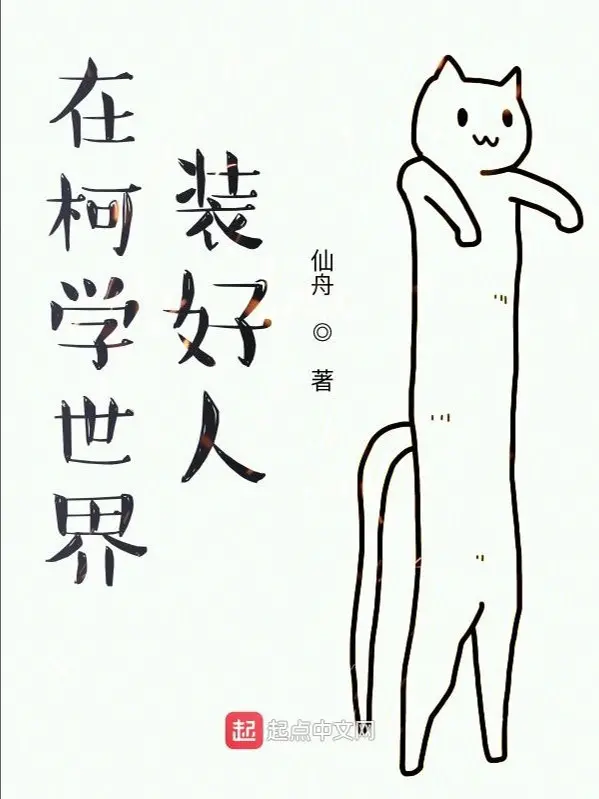 在柯学世界
装好人
仙舟 ◎ 著
起 起点中文网